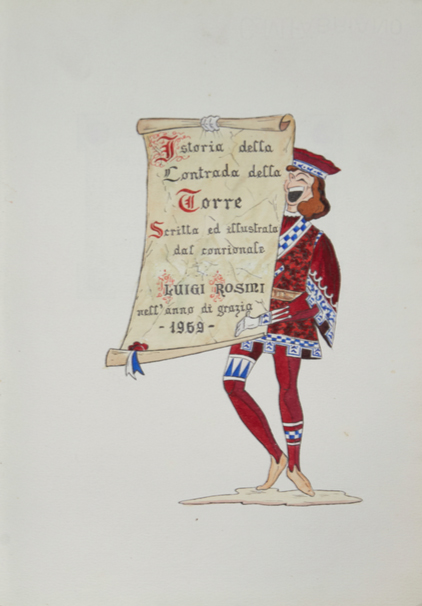 Istoria della
Contrada della
Torre
Scritta ed illustrata
dal conrionale
LUIGI ROSINI
nell'anno di grazia
- 1969 -